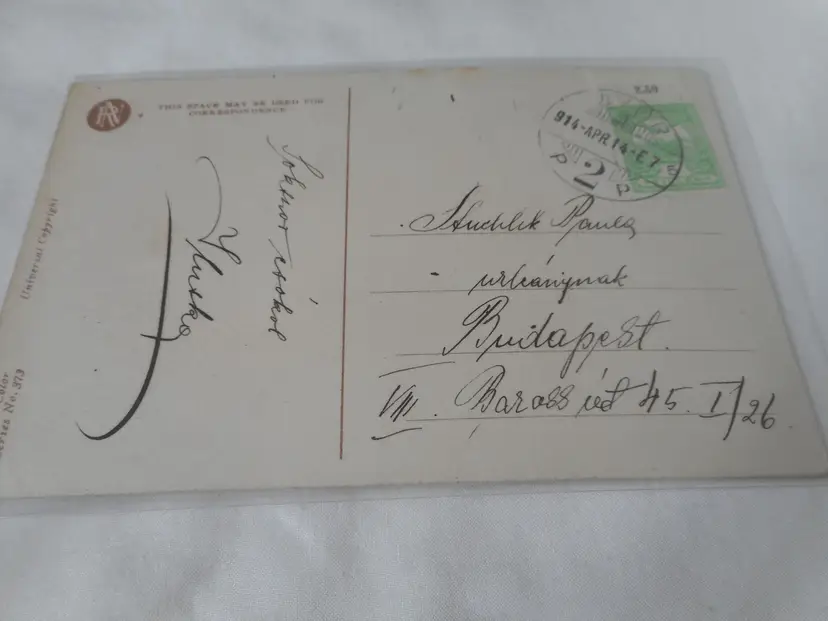 THIS SPACE MAY BE USED FOR
CORRESPONDENCE
Universal Copyright
Color
Series No. 373
Sokszor csókol
Iluska
914-APR.14-E.7
2
P P
E
Stuchlik Paula
urleánynak
Budapest.
VIII. Baross út 45. I/26